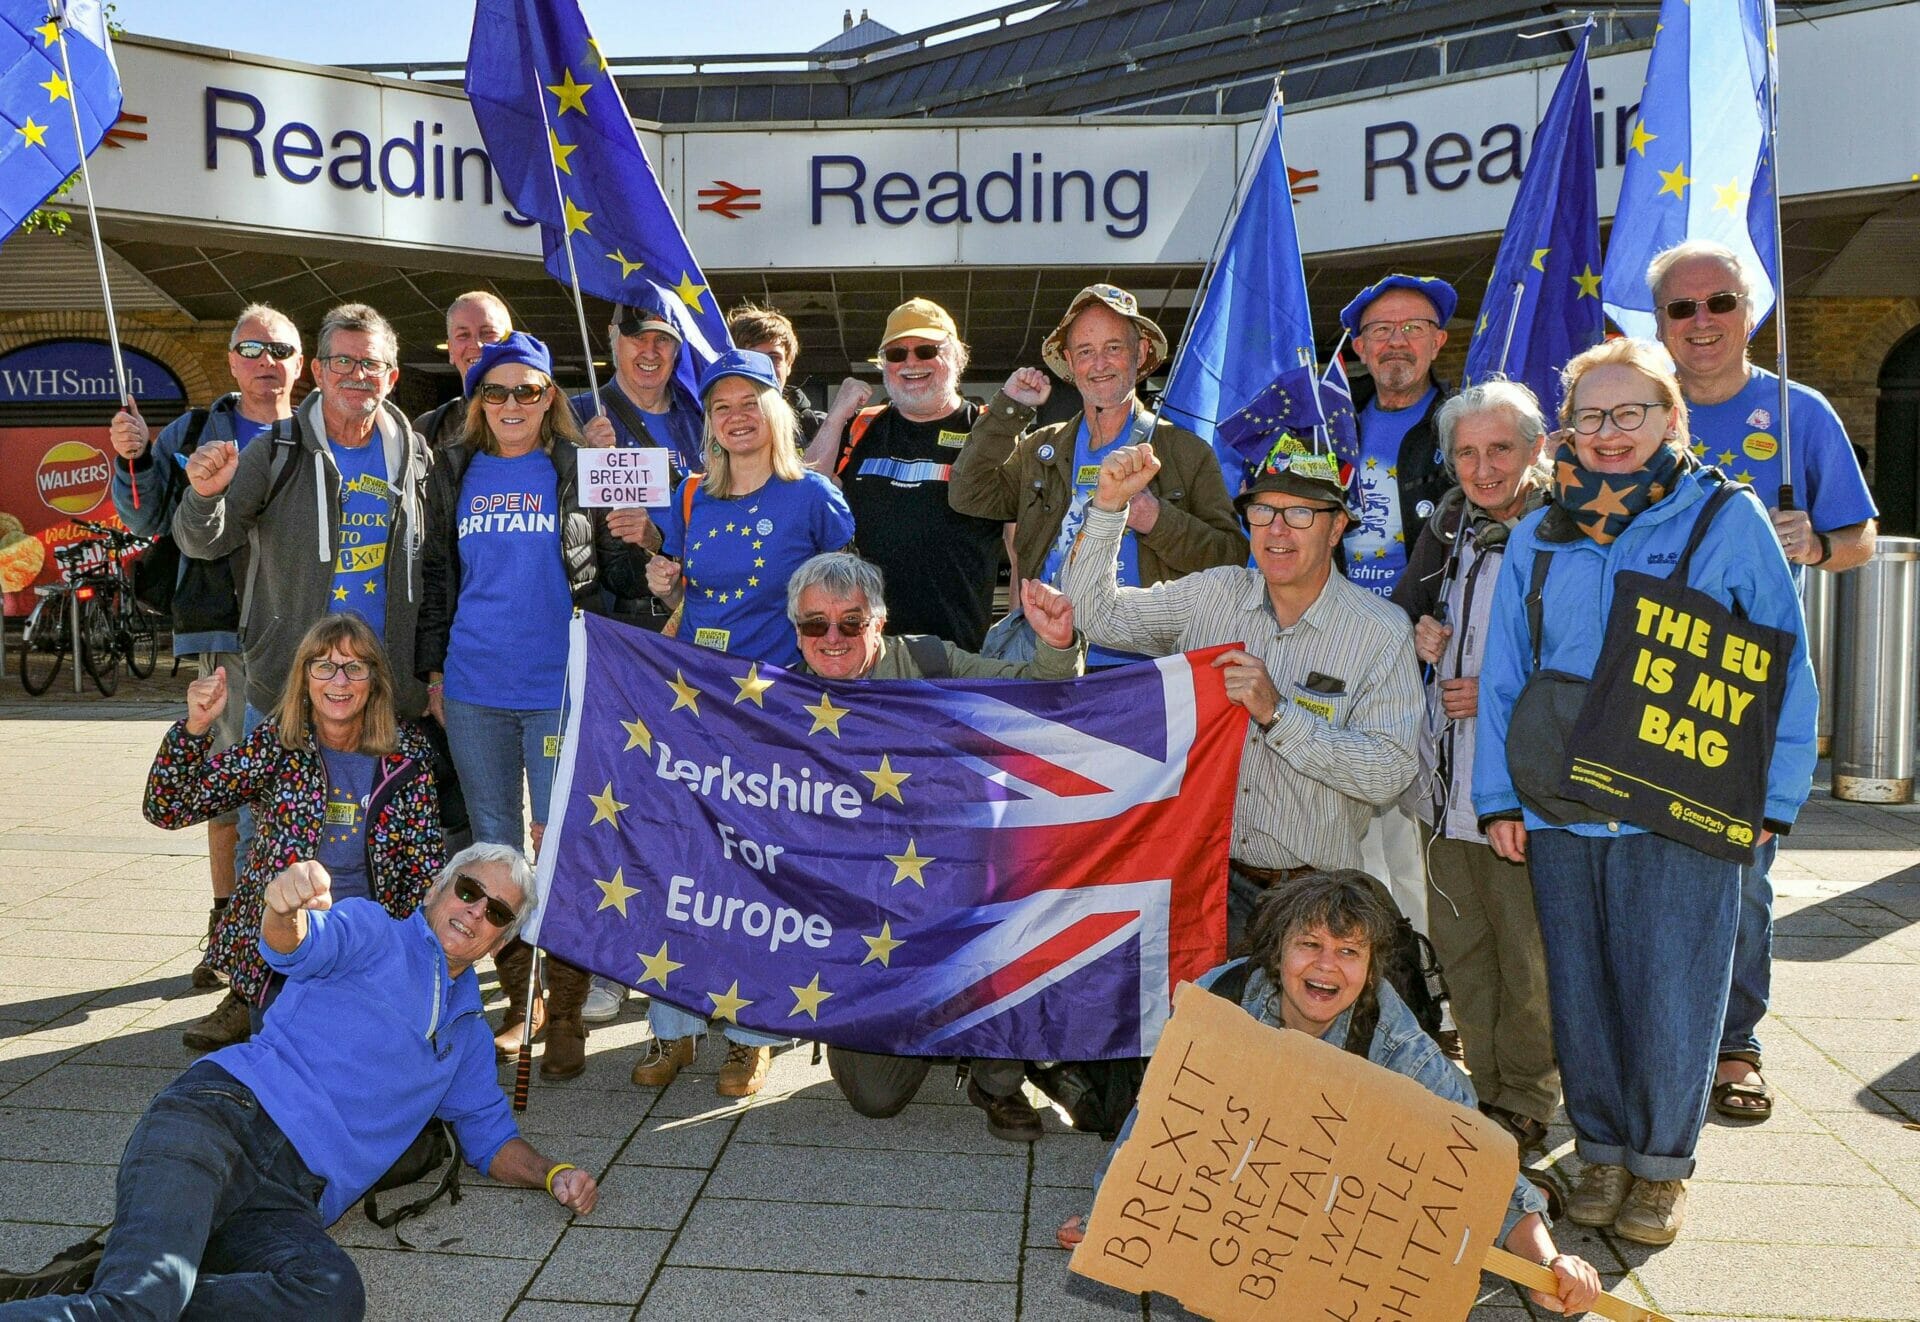 Reading
Reading
Rea in
WHSmith
WALKERS
Welcome to
GET
BREXIT
GONE
OPEN
BRITAIN
Berkshire
For
Europe
THE EU
IS MY
BAG
Green Party
BREXIT
TURNS
GREAT
BRITAIN
INTO
LITTLE
SHITAIN!